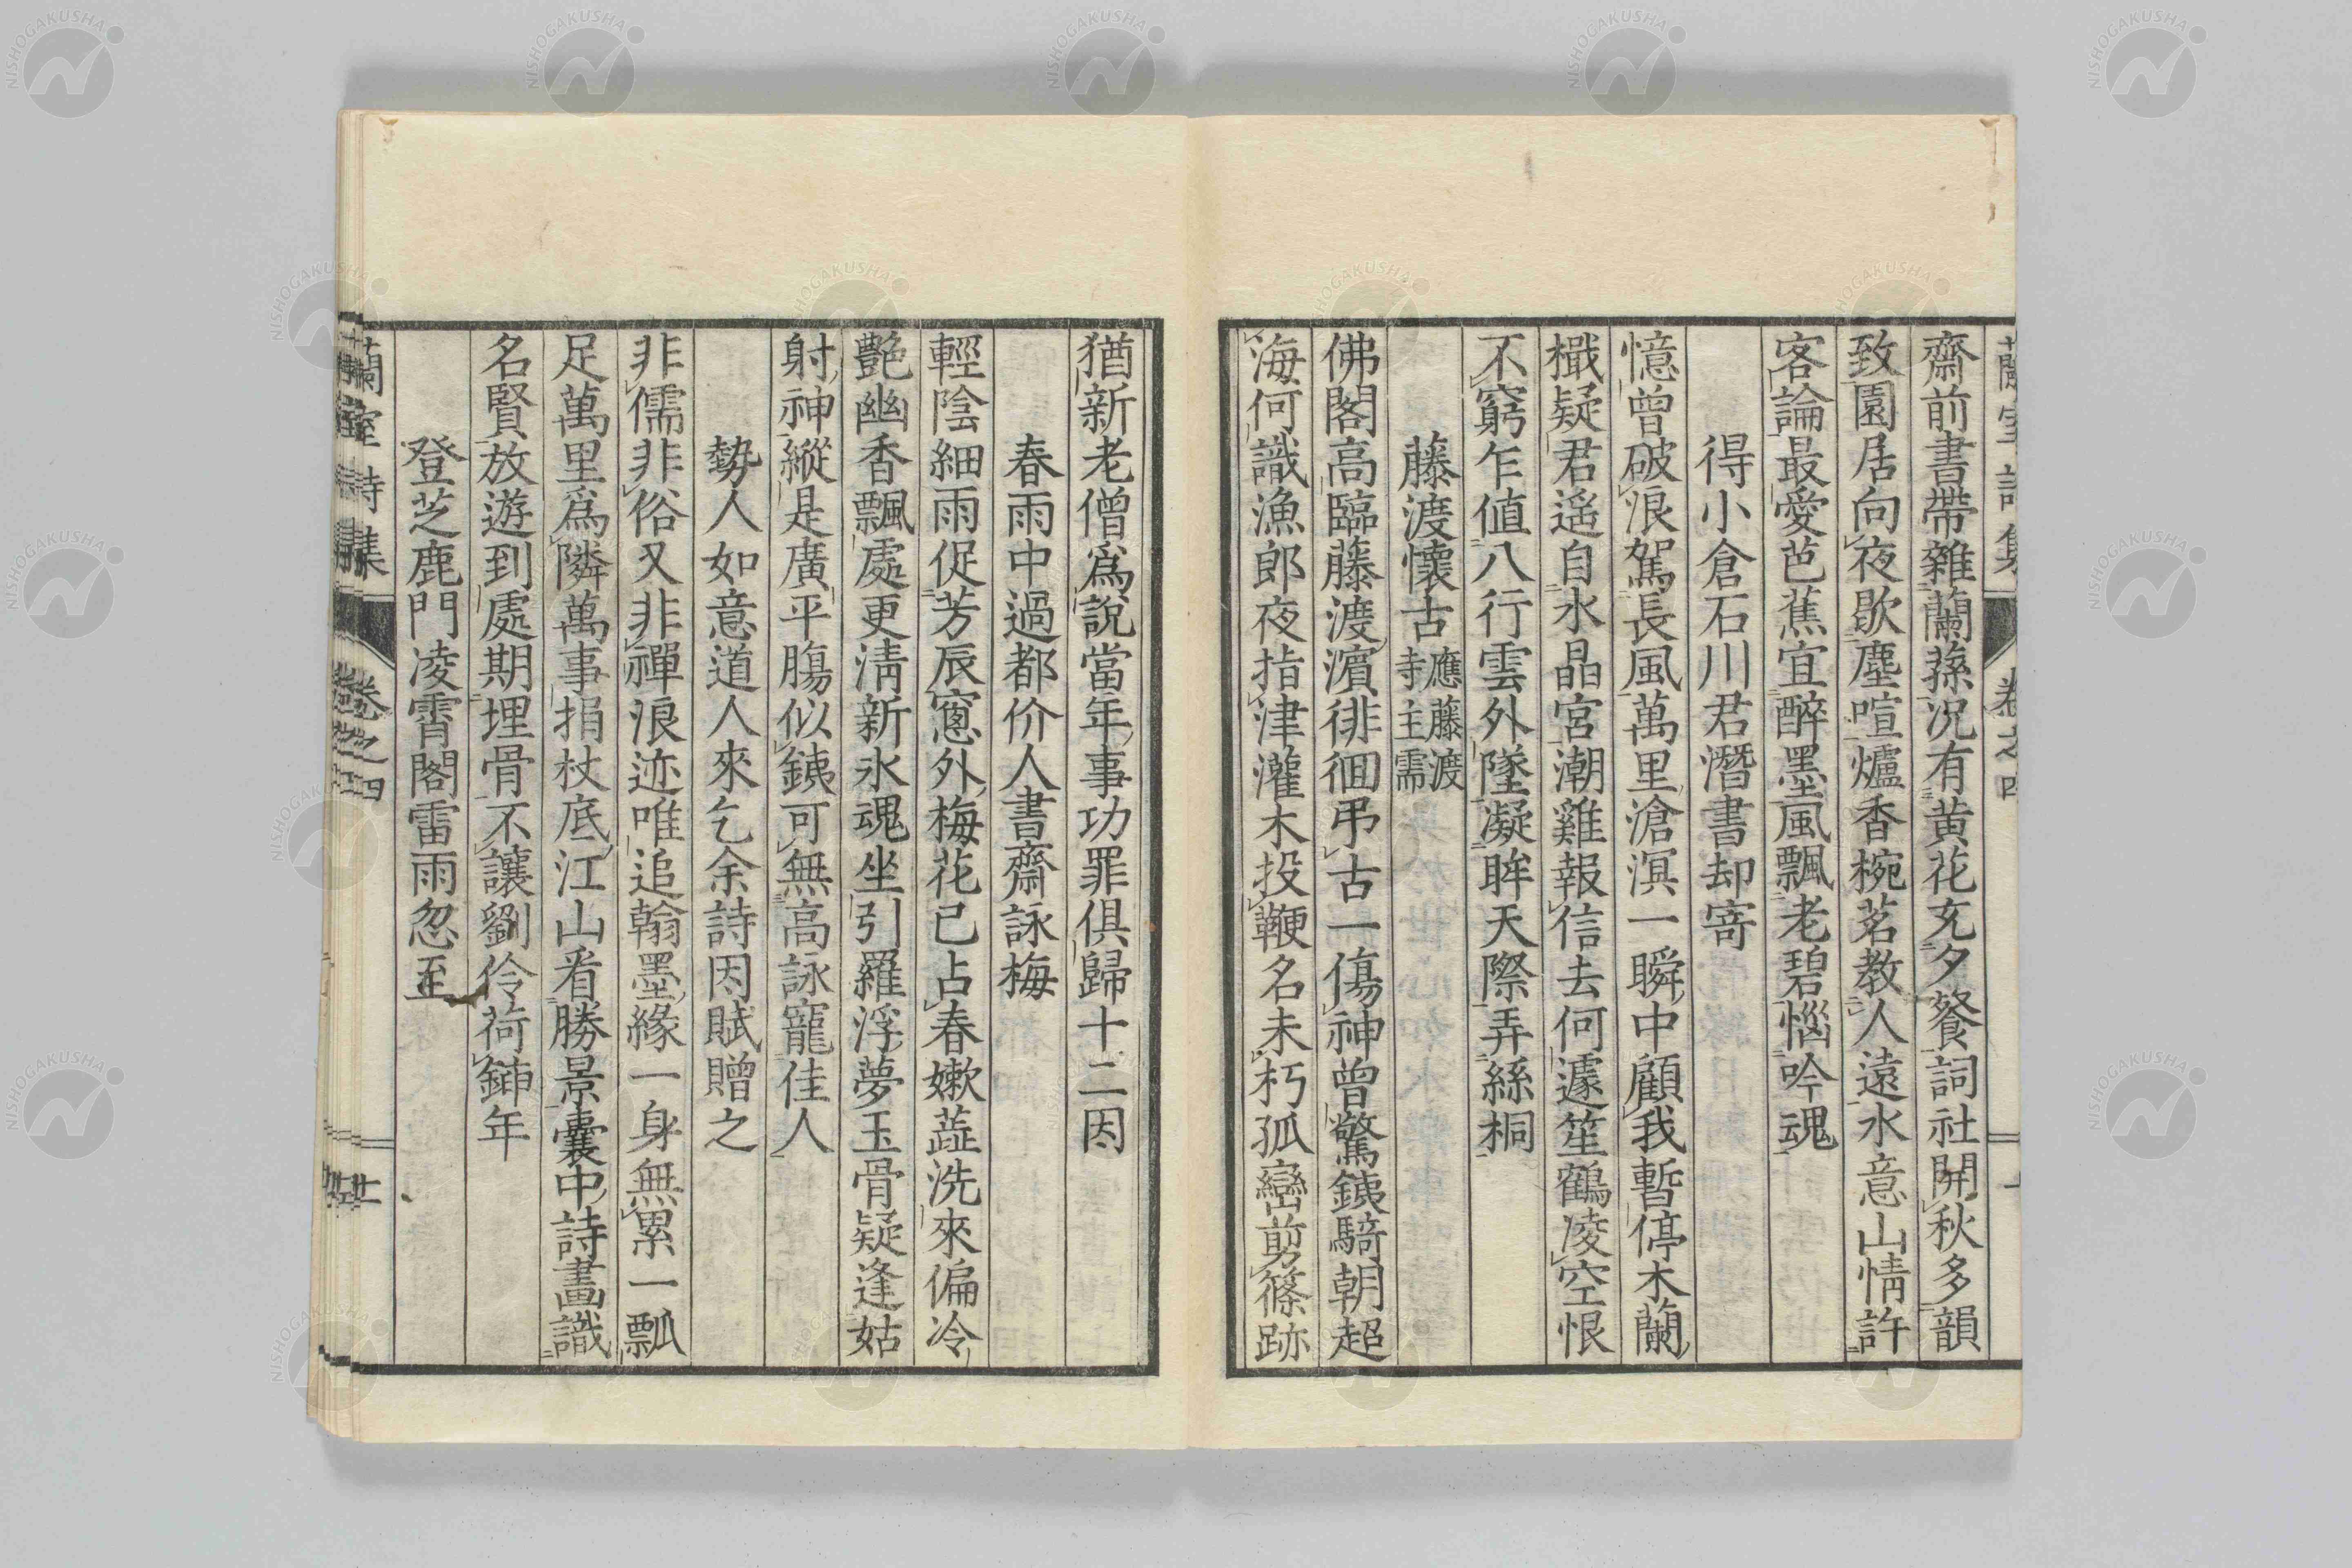 蘭室詩集 卷之四
齋前書帶雜蘭蓀況有黃花充夕餐詞社開秋多韻
致園居向夜歇塵喧爐香椀茗教人遠水意山情許
客論最愛芭蕉宜醉墨風飄老碧惱吟魂
得小倉石川君潛書却寄
憶曾破浪駕長風萬里滄溟一瞬中顧我暫停木蘭
檝疑君遙自水晶宮潮雞報信去何遽笙鶴凌空恨
不窮乍值八行雲外墜凝眸天際弄絲桐
藤渡懷古 應藤渡寺主需
佛閣高臨藤渡濱徘徊弔古一傷神曾驚銕騎朝超
海何識漁郎夜指津灌木投鞭名未朽孤巒剪篠跡
猶新老僧爲說當年事功罪俱歸十二因
春雨中過都价人書齋詠梅
輕陰細雨促芳辰窻外梅花已占春嫰蘂洗來偏冷
艷幽香飄處更淸新氷魂坐引羅浮夢玉骨疑逢姑
射神縱是廣平腸似銕可無高詠寵佳人
勢人如意道人來乞余詩因賦贈之
非儒非俗又非禪浪迹唯追翰墨緣一身無累一瓢
足萬里爲隣萬事捐杖底江山看勝景囊中詩畫識
名賢放遊到處期埋骨不讓劉伶荷鍤年
登芝鹿門凌霄閣雷雨忽至
蘭室詩集 卷之四